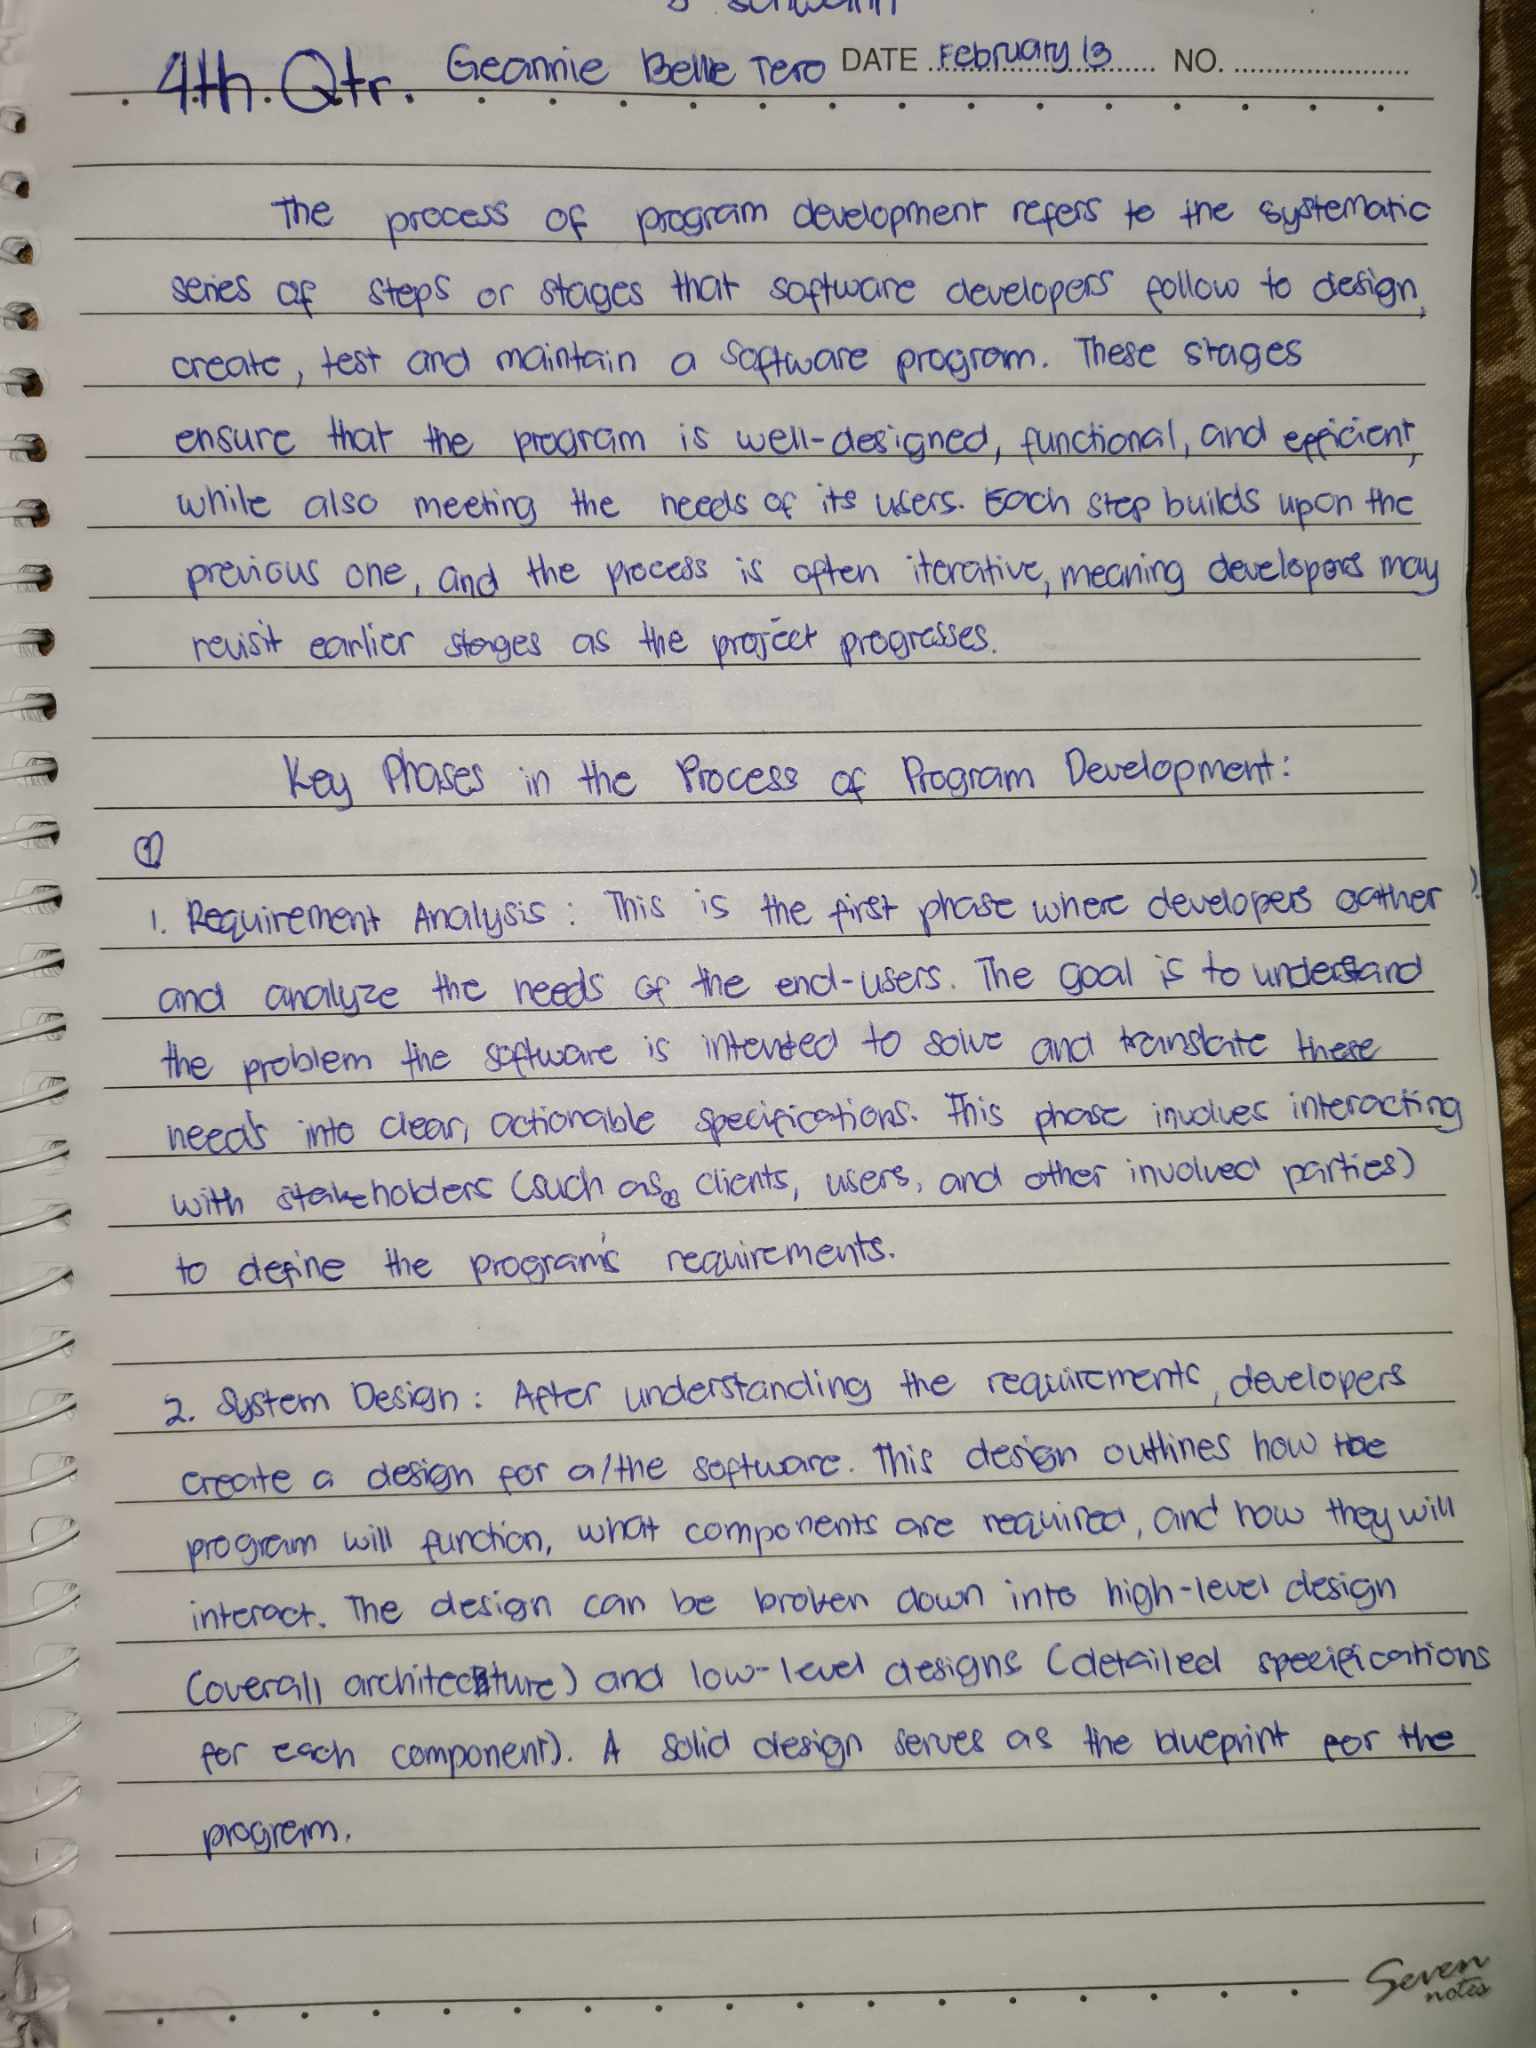 4th Qtr. Geannie Belle Tero DATE February 13 NO.
The process of program development refers to the systematic
series of steps or stages that software developers follow to design,
create, test and maintain a software program. These stages
ensure that the program is well-designed, functional, and efficient,
while also meeting the needs of its users. Each step builds upon the
previous one, and the process is often iterative, meaning developers may
revisit earlier stages as the project progresses.
Key Phases in the Process of Program Development:
①
1. Requirement Analysis : This is the first phase where developers gather
and analyze the needs of the end-users. The goal is to understand
the problem the software is intended to solve and translate these
needs into clear, actionable specifications. This phase involves interacting
with stakeholders (such as clients, users, and other involved parties)
to define the program's requirements.
2. System Design : After understanding the requirements, developers
create a design for a/the software. This design outlines how the
program will function, what components are required, and how they will
interact. The design can be broken down into high-level design
(overall architecture) and low-level designs (detailed specifications
for each component). A solid design serves as the blueprint for the
program.
Seven
notes